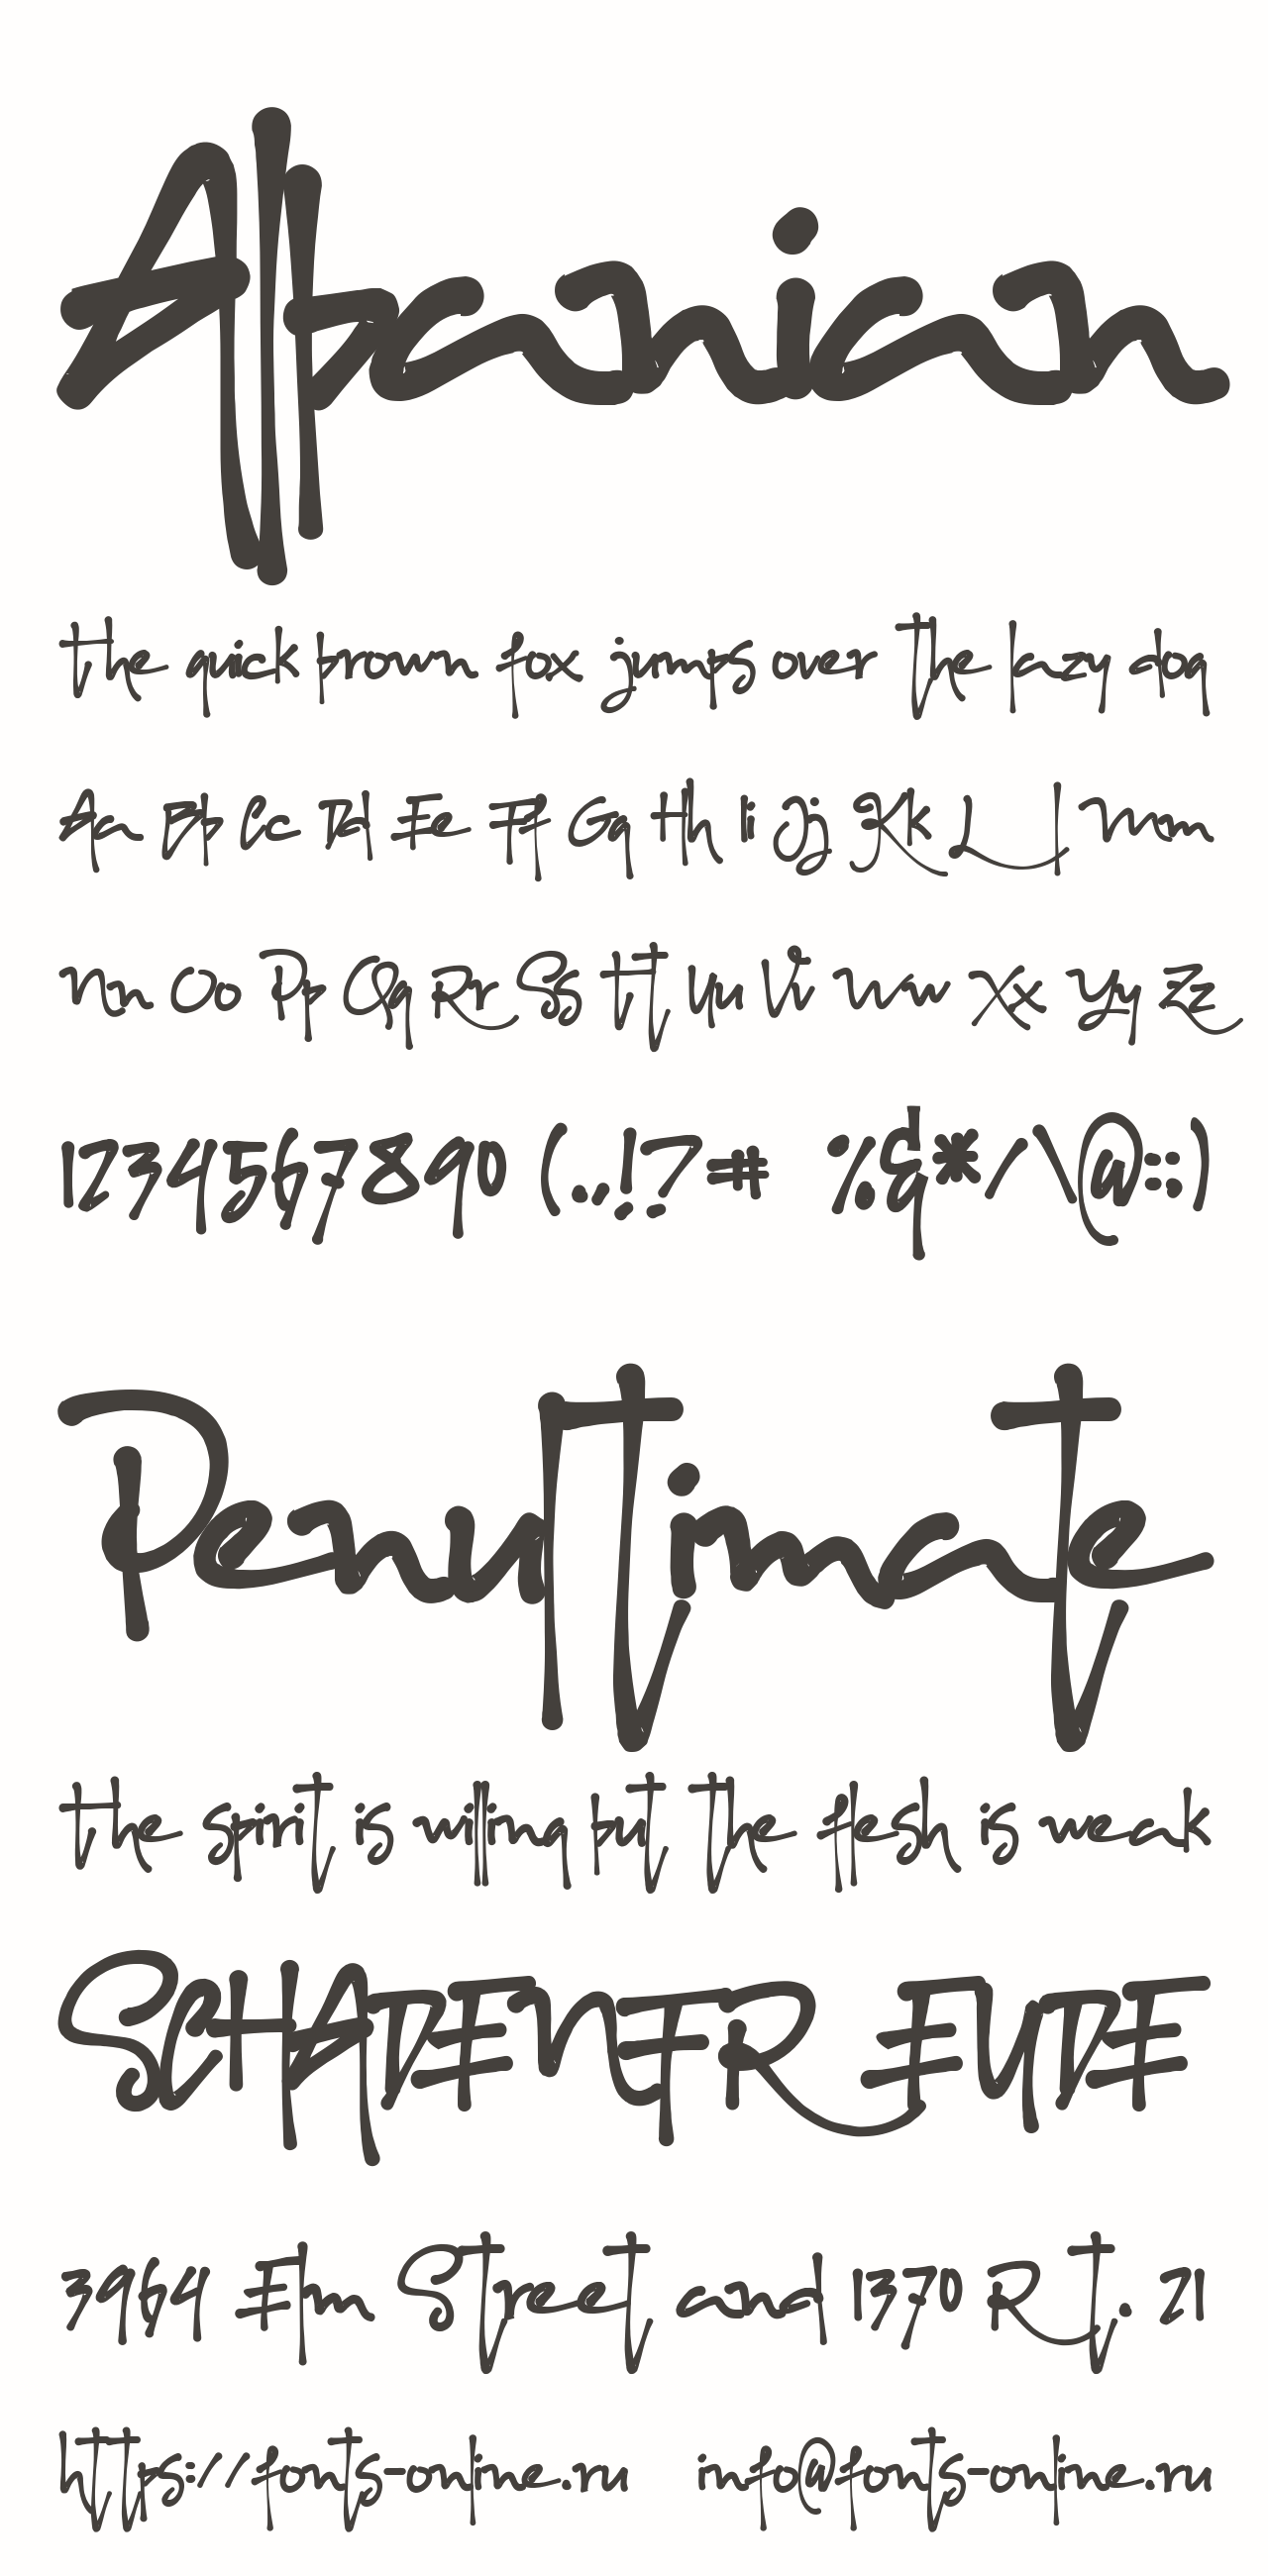 Albanian
The quick brown fox jumps over the lazy dog
Aa Bb Cc Dd Ee Ff Gg Hh Ii Jj Kk Ll Mm
Nn Oo Pp Qq Rr Ss Tt Uu Vv Ww Xx Yy Zz
1234567890 (.,!?# %&*/\@:;)
Penultimate
The spirit is willing but the flesh is weak
SCHADENFREUDE
3964 Elm Street and 1370 Rt. 21
https://fonts-online.ru info@fonts-online.ru